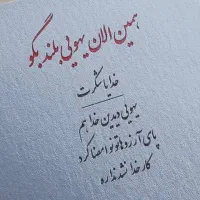 همین الان یهویی بلند بگو
خدایا شکرت
یهویی دیدین خدا هم
پای آرزوهاتونو امضا کرد
کار خدا نشد نداره